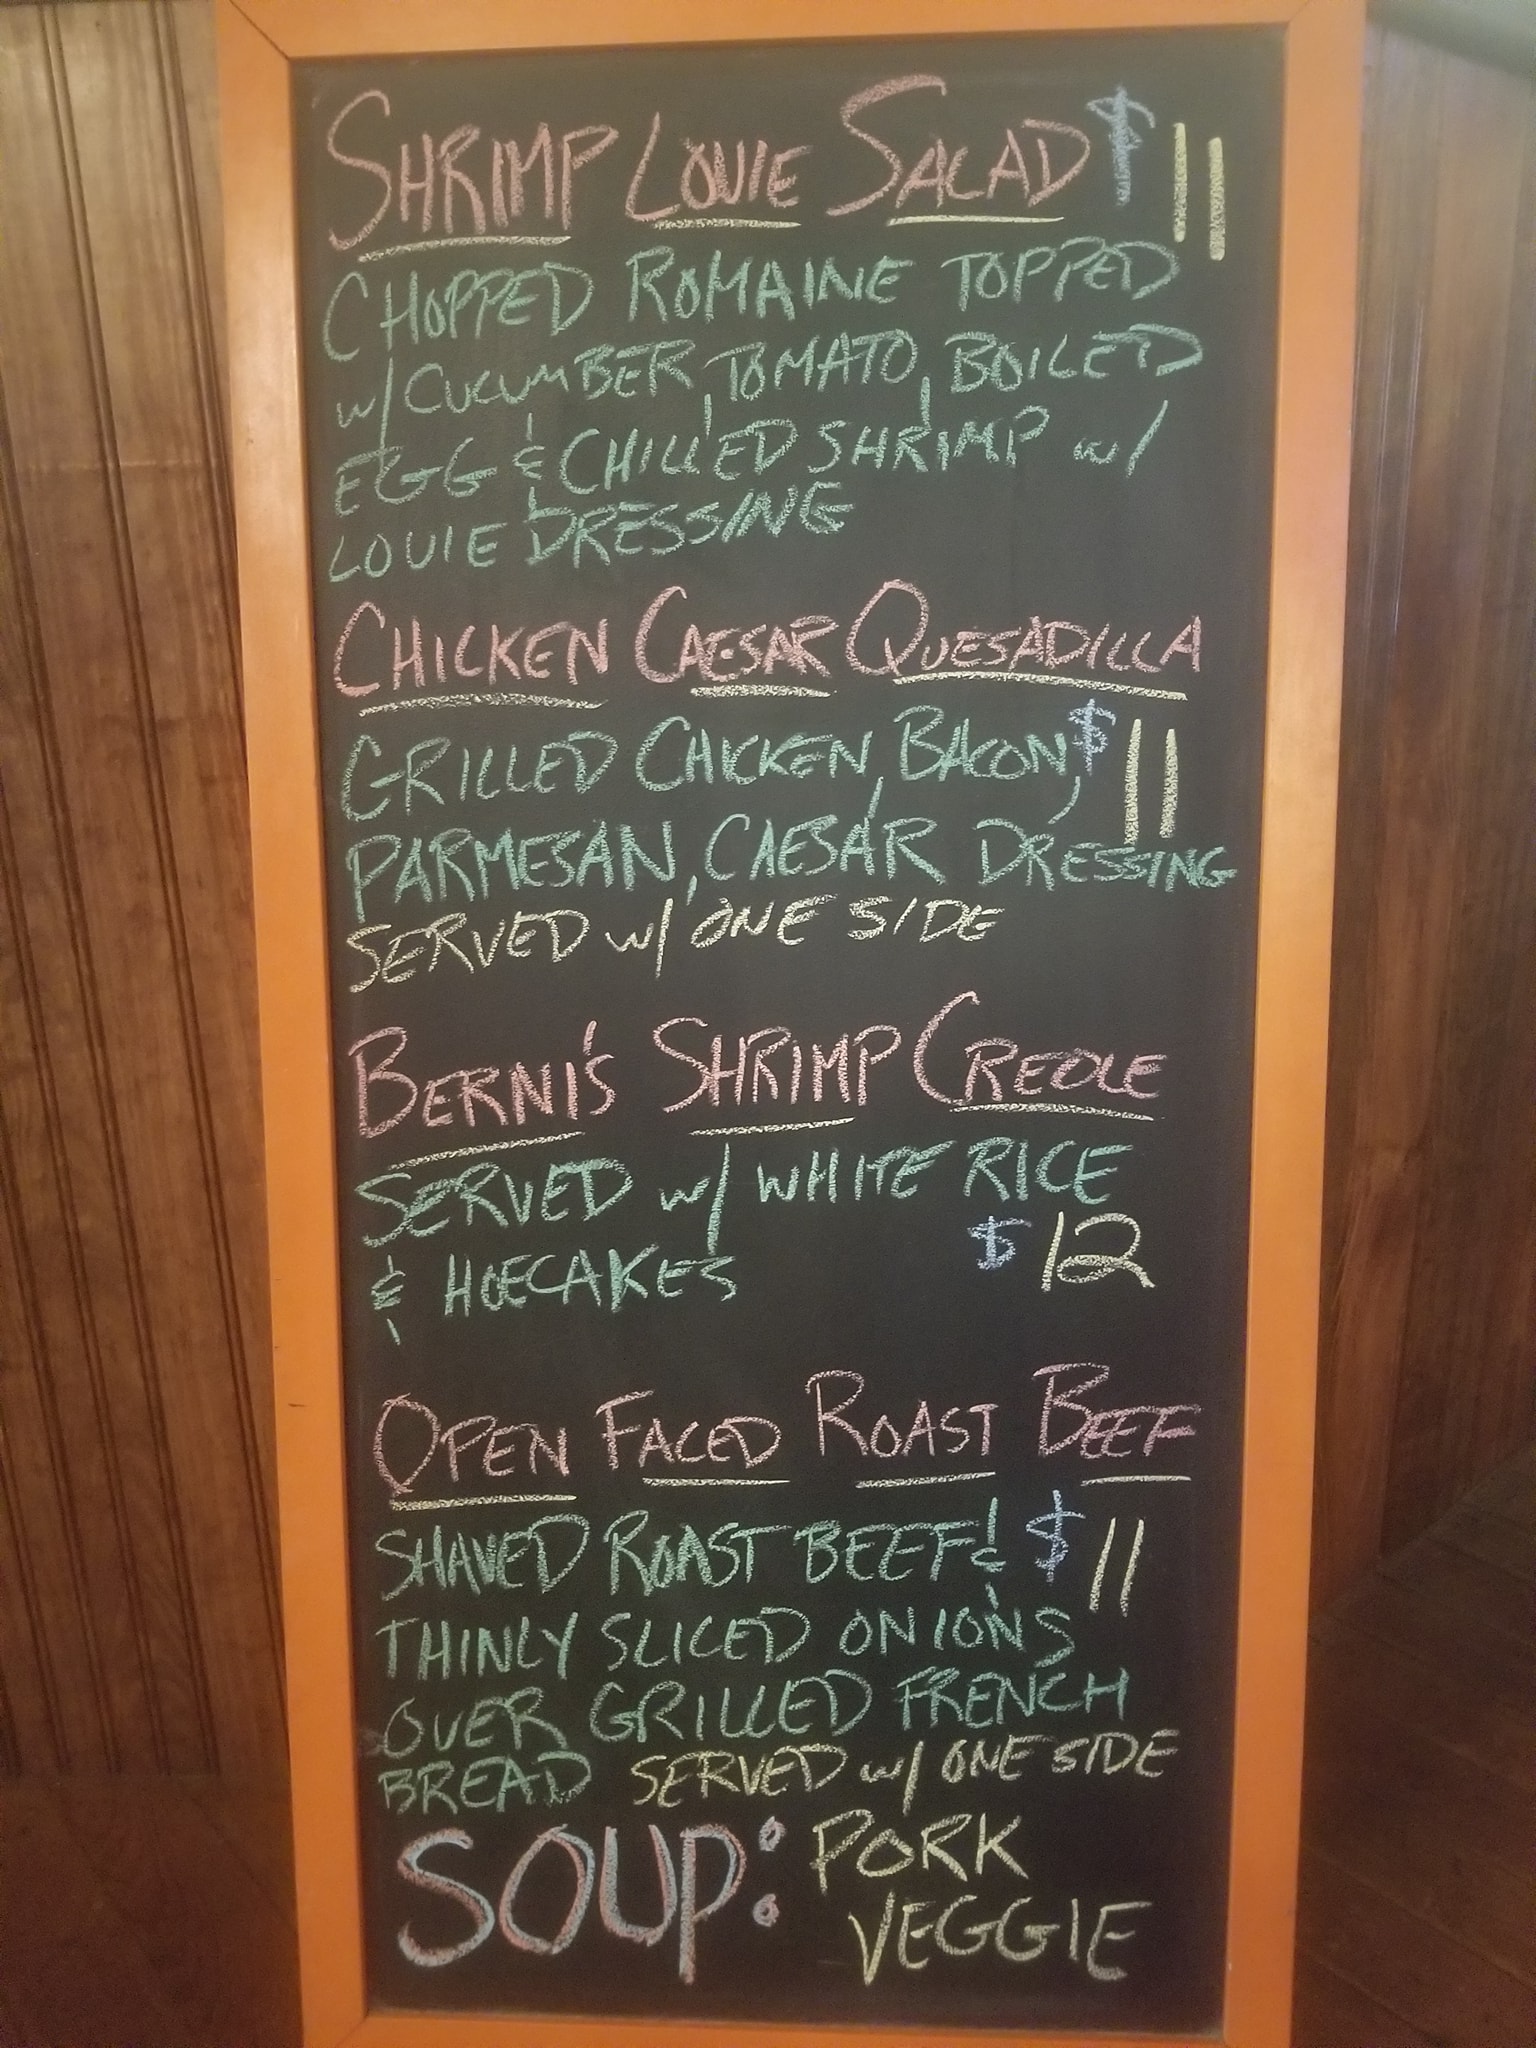 SHRIMP LOUIE SALAD $11
CHOPPED ROMAINE TOPPED
W/ CUCUMBER, TOMATO, BOILED
EGG & CHILLED SHRIMP W/
LOUIE DRESSING
CHICKEN CAESAR QUESADILLA
GRILLED CHICKEN, BACON, $11
PARMESAN, CAESAR DRESSING
SERVED W/ ONE SIDE
BERNI'S SHRIMP CREOLE
SERVED W/ WHITE RICE
& HOECAKES $12
OPEN FACED ROAST BEEF
SHAVED ROAST BEEF & $11
THINLY SLICED ONIONS
OVER GRILLED FRENCH
BREAD SERVED W/ ONE SIDE
SOUP: PORK
VEGGIE